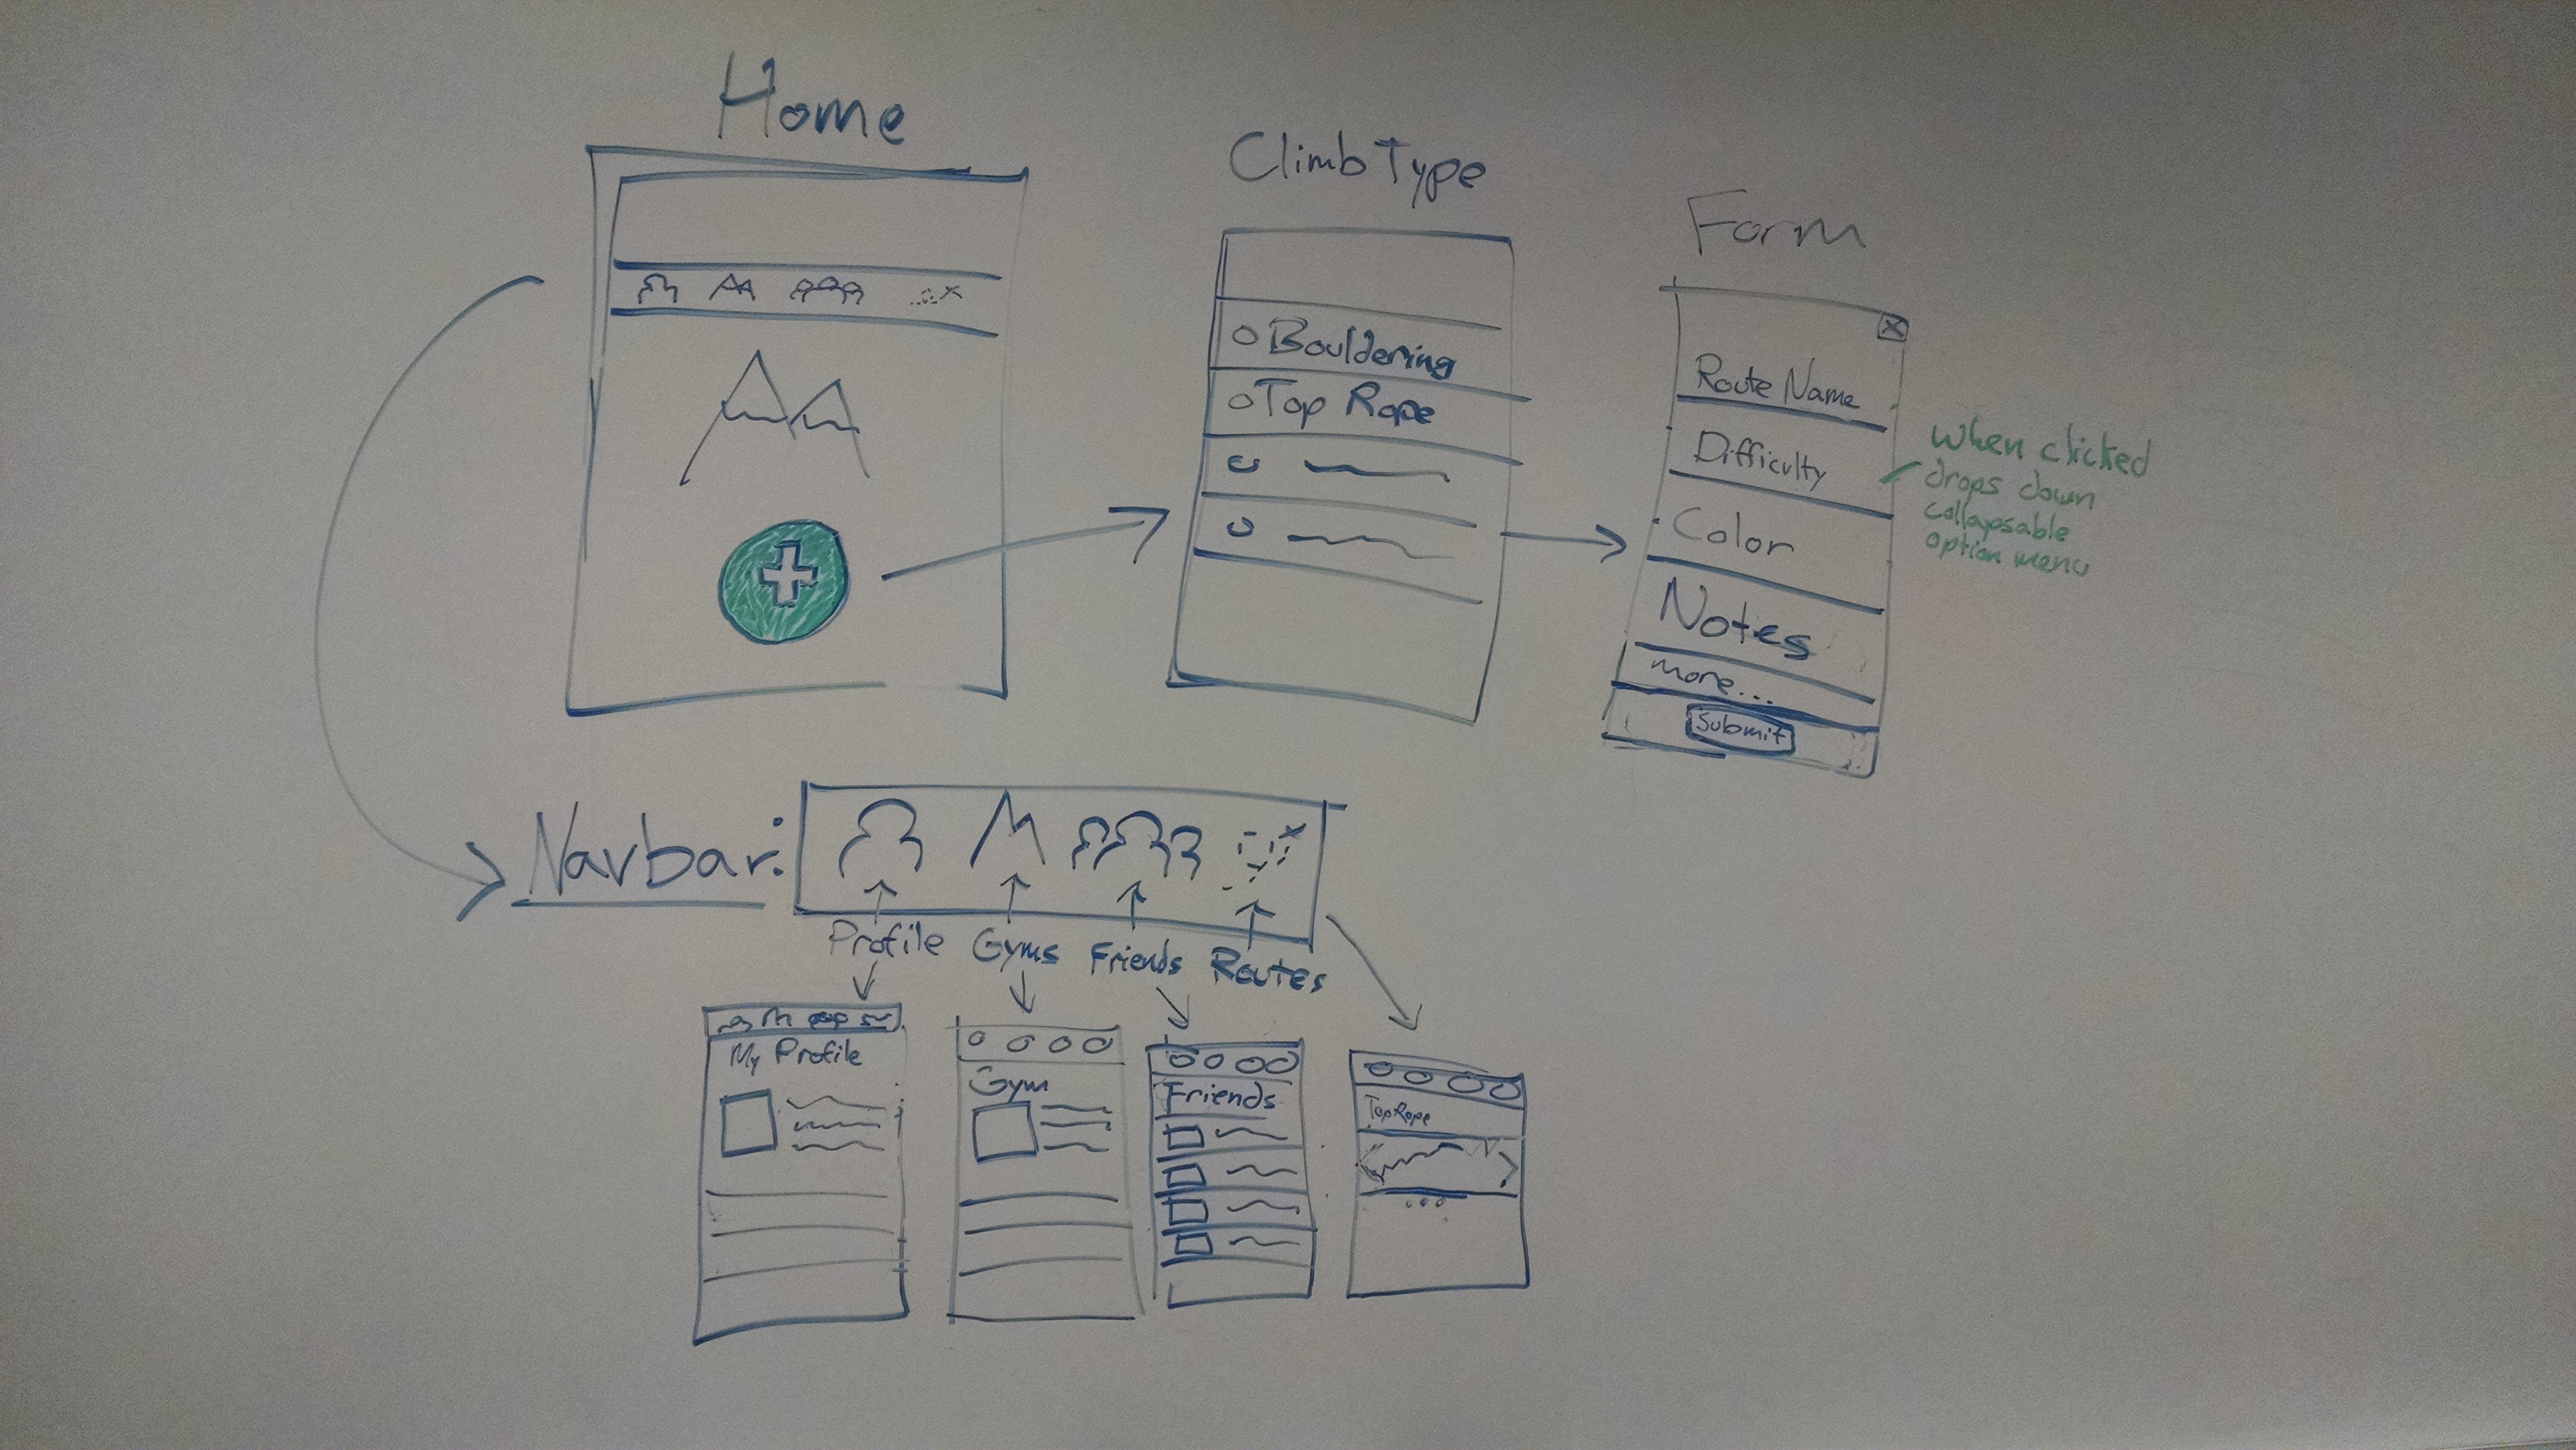 Home
Climb Type
Form
Bouldering
Top Rope
Route Name
Difficulty
Color
Notes
more...
Submit
when clicked
drops down
collapsable
option menu
Navbar:
Profile
Gyms
Friends
Routes
My Profile
Gym
Friends
Top Rope